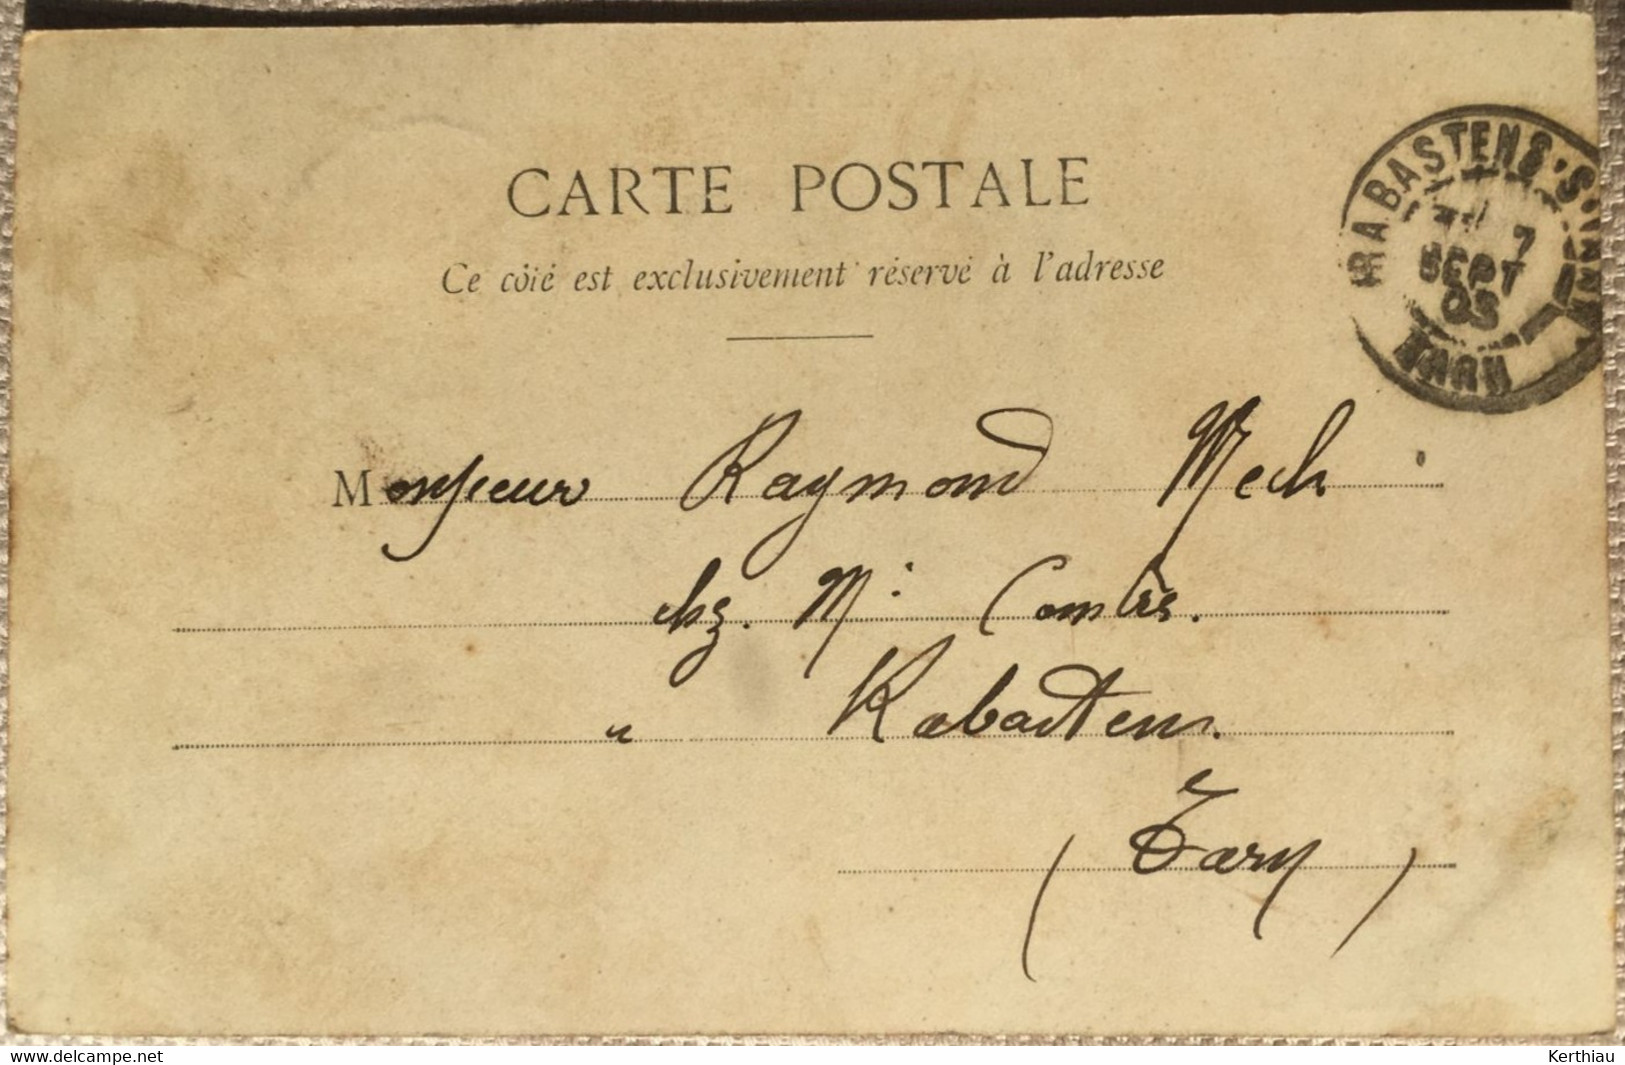 CARTE POSTALE
Ce côté est exclusivement réservé à l'adresse
RABASTENS·S·TARN
7
SEPT
05
TARN
Monsieur Raymond Mech
chz. Mr Combes.
" Rabastens.
(Tarn)
www.delcampe.net
Kerthiau